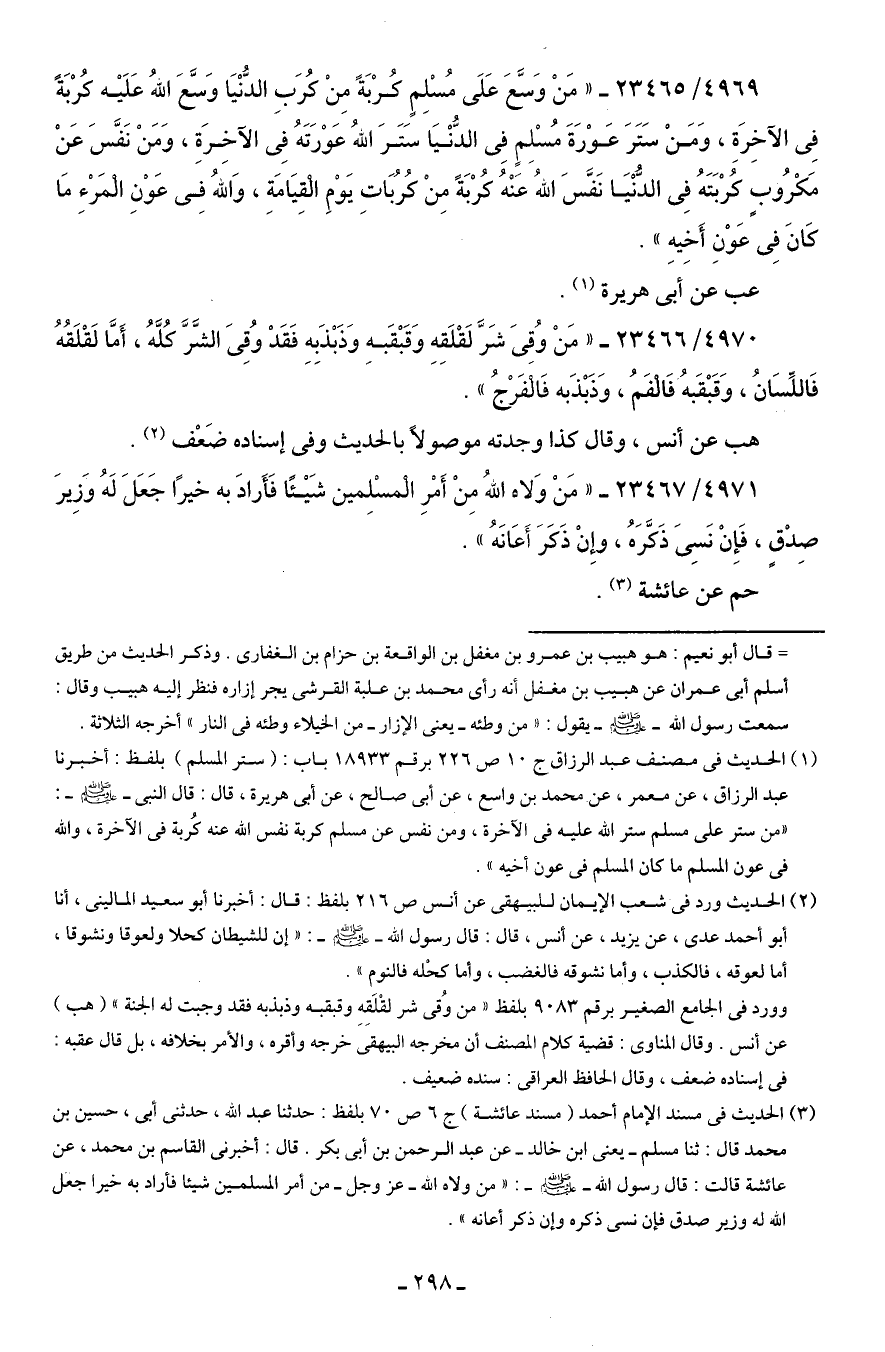 ٢٣٤٦٥/٤٩٦٩ ـ « مَنْ وَسَّعَ عَلَى مُسْلِمٍ كُرْبَةً مِنْ كُرَبِ الدُّنْيَا وَسَّعَ اللهُ عَلَيْهِ كُرْبَةً
فِى الآخِرَةِ ، وَمَنْ سَتَرَ عَوْرَةَ مُسْلِمٍ فِى الدُّنْيَا سَتَرَ اللهُ عَوْرَتَهُ فِى الآخِرَةِ ، وَمَنْ نَفَّسَ عَنْ
مَكْرُوبٍ كُرْبَتَهُ فِى الدُّنْيَا نَفَّسَ اللهُ عَنْهُ كُرْبَةً مِنْ كُرُبَاتِ يَوْمِ الْقِيَامَةِ ، وَاللهُ فِى عَوْنِ الْمَرْءِ مَا
كَانَ فِى عَوْنِ أَخِيهِ » .
عب عن أبى هريرة (١) .
٢٣٤٦٦/٤٩٧٠ ـ « مَنْ وُقِىَ شَرَّ لَقْلَقِهِ وَقَبْقَبِهِ وَذَبْذَبِهِ فَقَدْ وُقِىَ الشَّرَّ كُلَّهُ ، أَمَّا لَقْلَقُهُ
فَاللِّسَانُ ، وَقَبْقَبهُ فَالْفَمُ ، وَذَبْذَبه فَالْفَرْجُ » .
هب عن أنس ، وقال كذا وجدته موصولاً بالحديث وفى إسناده ضَعْف (٢) .
٢٣٤٦٧/٤٩٧١ ـ « مَنْ وَلاه اللهُ مِنْ أَمْرِ الْمسْلمين شَيْئًا فَأَرادَ به خيرًا جَعَلَ لَهُ وَزِيرَ
صِدْقٍ ، فَإِنْ نَسِىَ ذَكَّرَهُ ، وإِنْ ذَكَرَ أَعَانَهُ » .
حم عن عائشة (٣) .
= قال أبو نعيم : هو هبيب بن عمرو بن مغفل بن الواقعة بن حزام بن الغفارى . وذكر الحديث من طريق
أسلم أبى عمران عن هبيب بن مغفل أنه رأى محمد بن علبة القرشى يجر إزاره فنظر إليه هبيب وقال :
سمعت رسول الله ـ ﷺ ـ يقول : « من وطئه ـ يعنى الإزار ـ من الخيلاء وطئه فى النار » أخرجه الثلاثة .
(١) الحديث فى مصنف عبد الرزاق ج ١٠ ص ٢٢٦ برقم ١٨٩٣٣ باب : ( ستر المسلم ) بلفظ : أخبرنا
عبد الرزاق ، عن معمر ، عن محمد بن واسع ، عن أبى صالح ، عن أبى هريرة ، قال : قال النبى ـ ﷺ ـ :
«من ستر على مسلم ستر الله عليه فى الآخرة ، ومن نفس عن مسلم كربة نفس الله عنه كُربة فى الآخرة ، والله
فى عون المسلم ما كان المسلم فى عون أخيه » .
(٢) الحديث ورد فى شعب الإيمان للبيهقى عن أنس ص ٢١٦ بلفظ : قال : أخبرنا أبو سعيد المالينى ، أنا
أبو أحمد عدى ، عن يزيد ، عن أنس ، قال : قال رسول الله ـ ﷺ ـ : « إن للشيطان كحلا ولعوقا ونشوقا ،
أما لعوقه ، فالكذب ، وأما نشوقه فالغضب ، وأما كحْله فالنوم » .
وورد فى الجامع الصغير برقم ٩٠٨٣ بلفظ « من وُقى شر لقْلَقِه وقبقبه وذبذبه فقد وجبت له الجنة » ( هب )
عن أنس . وقال المناوى : قضية كلام المصنف أن مخرجه البيهقى خرجه وأقره ، والأمر بخلافه ، بل قال عقبه :
فى إسناده ضعف ، وقال الحافظ العراقى : سنده ضعيف .
(٣) الحديث فى مسند الإمام أحمد ( مسند عائشة ) ج ٦ ص ٧٠ بلفظ : حدثنا عبد الله ، حدثنى أبى ، حسين بن
محمد قال : ثنا مسلم ـ يعنى ابن خالد ـ عن عبد الرحمن بن أبى بكر . قال : أخبرنى القاسم بن محمد ، عن
عائشة قالت : قال رسول الله ـ ﷺ ـ : « من ولاه الله ـ عز وجل ـ من أمر المسلمين شيئا فأراد به خيرا جعل
الله له وزير صدق فإن نسى ذكره وإن ذكر أعانه » .
ـ ٢٩٨ ـ